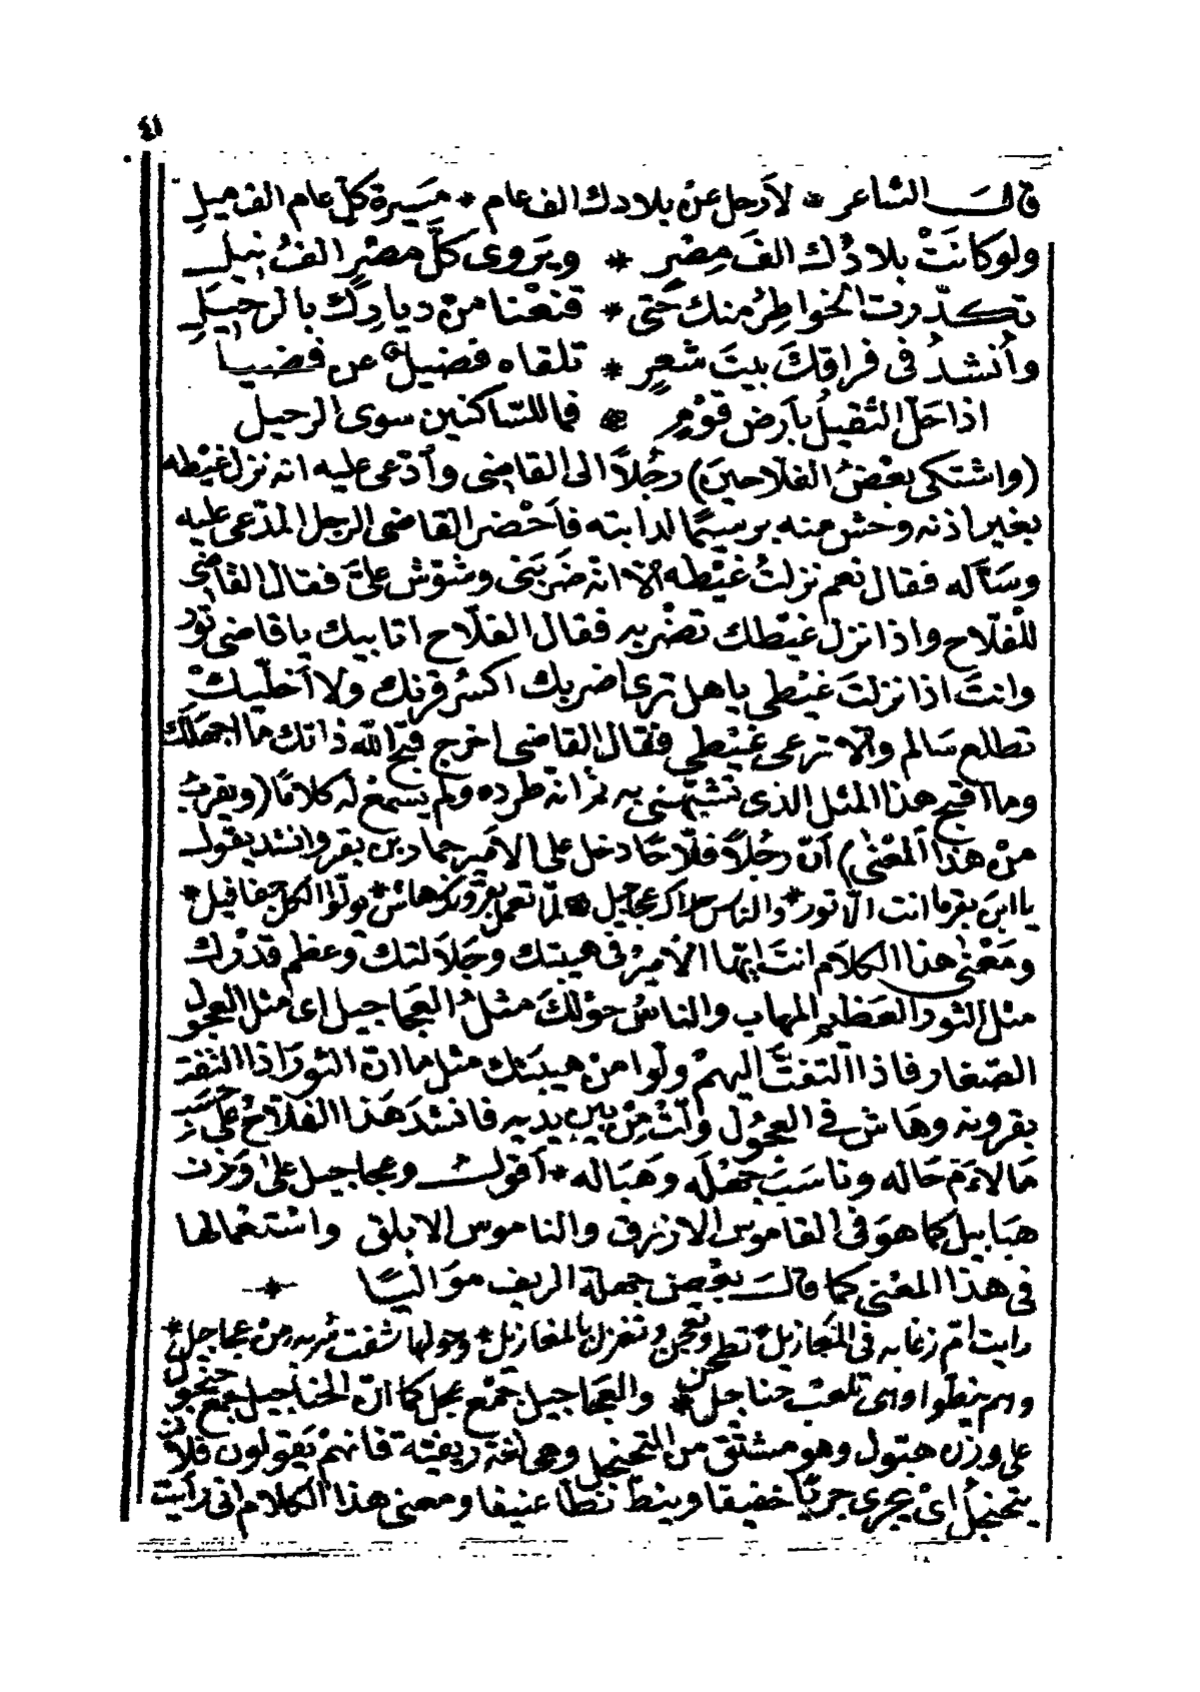 ٤١
قال الشاعر * لأرحل عن بلادك الف عام * مسيرة كل عام الف ميل
ولو كانَتْ بلادُك الفَ مِصْرٍ * ويَروى كلَّ مصْرٍ الفُ نيل
تكدّرت الخواطِرُ منك حَتى * قنعْنا من ديارِك بالرحيلِ
وأنشدُ في فراقِكَ بيتَ شعرٍ * تلقاه فضيلٌ عن فضيل
اذا حَلّ الثقيلُ بأرض قوْمٍ * فما للسّاكنين سوى الرحيل
(واشتكى بعْضُ الفلاحين) رجُلاً الى القاضي وأدّعى عليه انه نزل غيْطه
بغير اذنه وحش منه برسيمًا لدابته فأحْضر القاضي الرجل المدّعى عليه
وسَأله فقال نعم نزلتُ غيْطه الا انه ضَربَني وشوّش عليّ فقال القاضي
للفلّاح واذا نزل غيطك تضْربه فقال الفلّاح انا بيك يا قاضي تور
وانتَ اذا نزلتَ غيْطي يا هل ترى اضربك اكسُر قرنك ولا اخلّيك
تطلع سَالم والا ترعى غيْطي فقال القاضي اخرج قبّح الله ذاتك ما اجهلك
وما اقبح هذا المثل الذي تشبّهني به ثم انه طرده ولم يسمعْ له كلامًا (ويقربُ
منْ هذا المعْنى) أنّ رجُلاً فلّاحًا دخل على الأمير حماد بن بقر وانشد يقول
يا ابن بقر ما انت الا تور * والناس حداك عجاجيل * لما تعمل بقرونك هاش * يولّوا الكل جفافيل *
ومَعْنى هذا الكلام انتَ ايّها الأميرُ في هيبتك وجَلَالتك وعظم قدْرك
مثل الثور العَظيم المهاب والناسُ حوْلكَ مثلُ العجاجيل اي مثل العجول
الصغار فاذا التفتَّ اليهمْ ولّوا من هيبَتك مثل ما انّ الثورَ اذا التفت
بقرونه وهَاش في العجُول ولّتْ منْ بين يديه فانشدَ هَذا الفلّاحُ على حَسَبِ
مَا لاءَم حَاله وناسَبَ جهْلَه وهَبَاله * أقول وعجاجيل على وَزن
هبَابيل كما هوَ في القاموس الازرق والناموس الابلق واشتغالها
في هذا المعْنى كما قال بعْض جهلة الريف موَاليّا *
رايت امّ زغابه في المَجازيل * تطحن وتعجن وتغزل بالمغازيل * وحولها شفت شربه منْ عجاجل *
وهم ينطوا وهي تلعبْ حناجل * والعجاجيل جمْع عجل كما انّ الحناجيل جمْع حنجول
على وزن هبُول وهو مشتقّ من التحنجل وهي لغة ريفيّة فانهمْ يَقولون فلان
يتحنجلُ ايْ يجري جريًا خفيفا وينطّ نطّا عنيفا ومعنى هذا الكلام اني رأيت